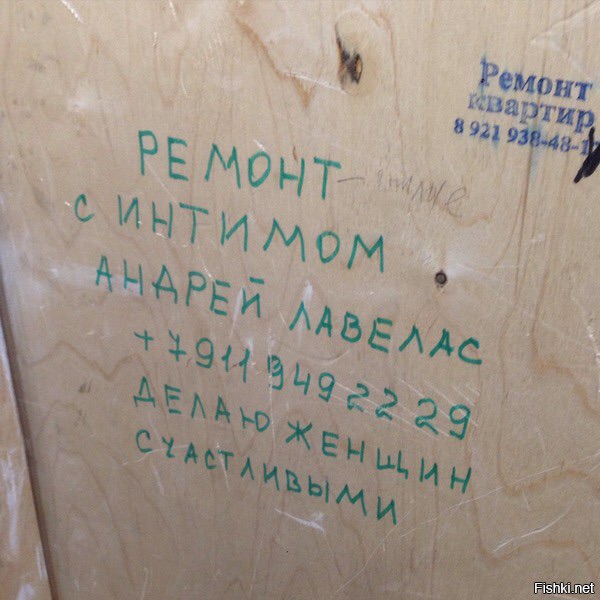 Ремонт
квартир
8 921 938-48-1
РЕМОНТ
С ИНТИМОМ
АНДРЕЙ ЛАВЕЛАС
+7911 949 22 29
ДЕЛАЮ ЖЕНЩИН
СЧАСТЛИВЫМИ
Fishki.net